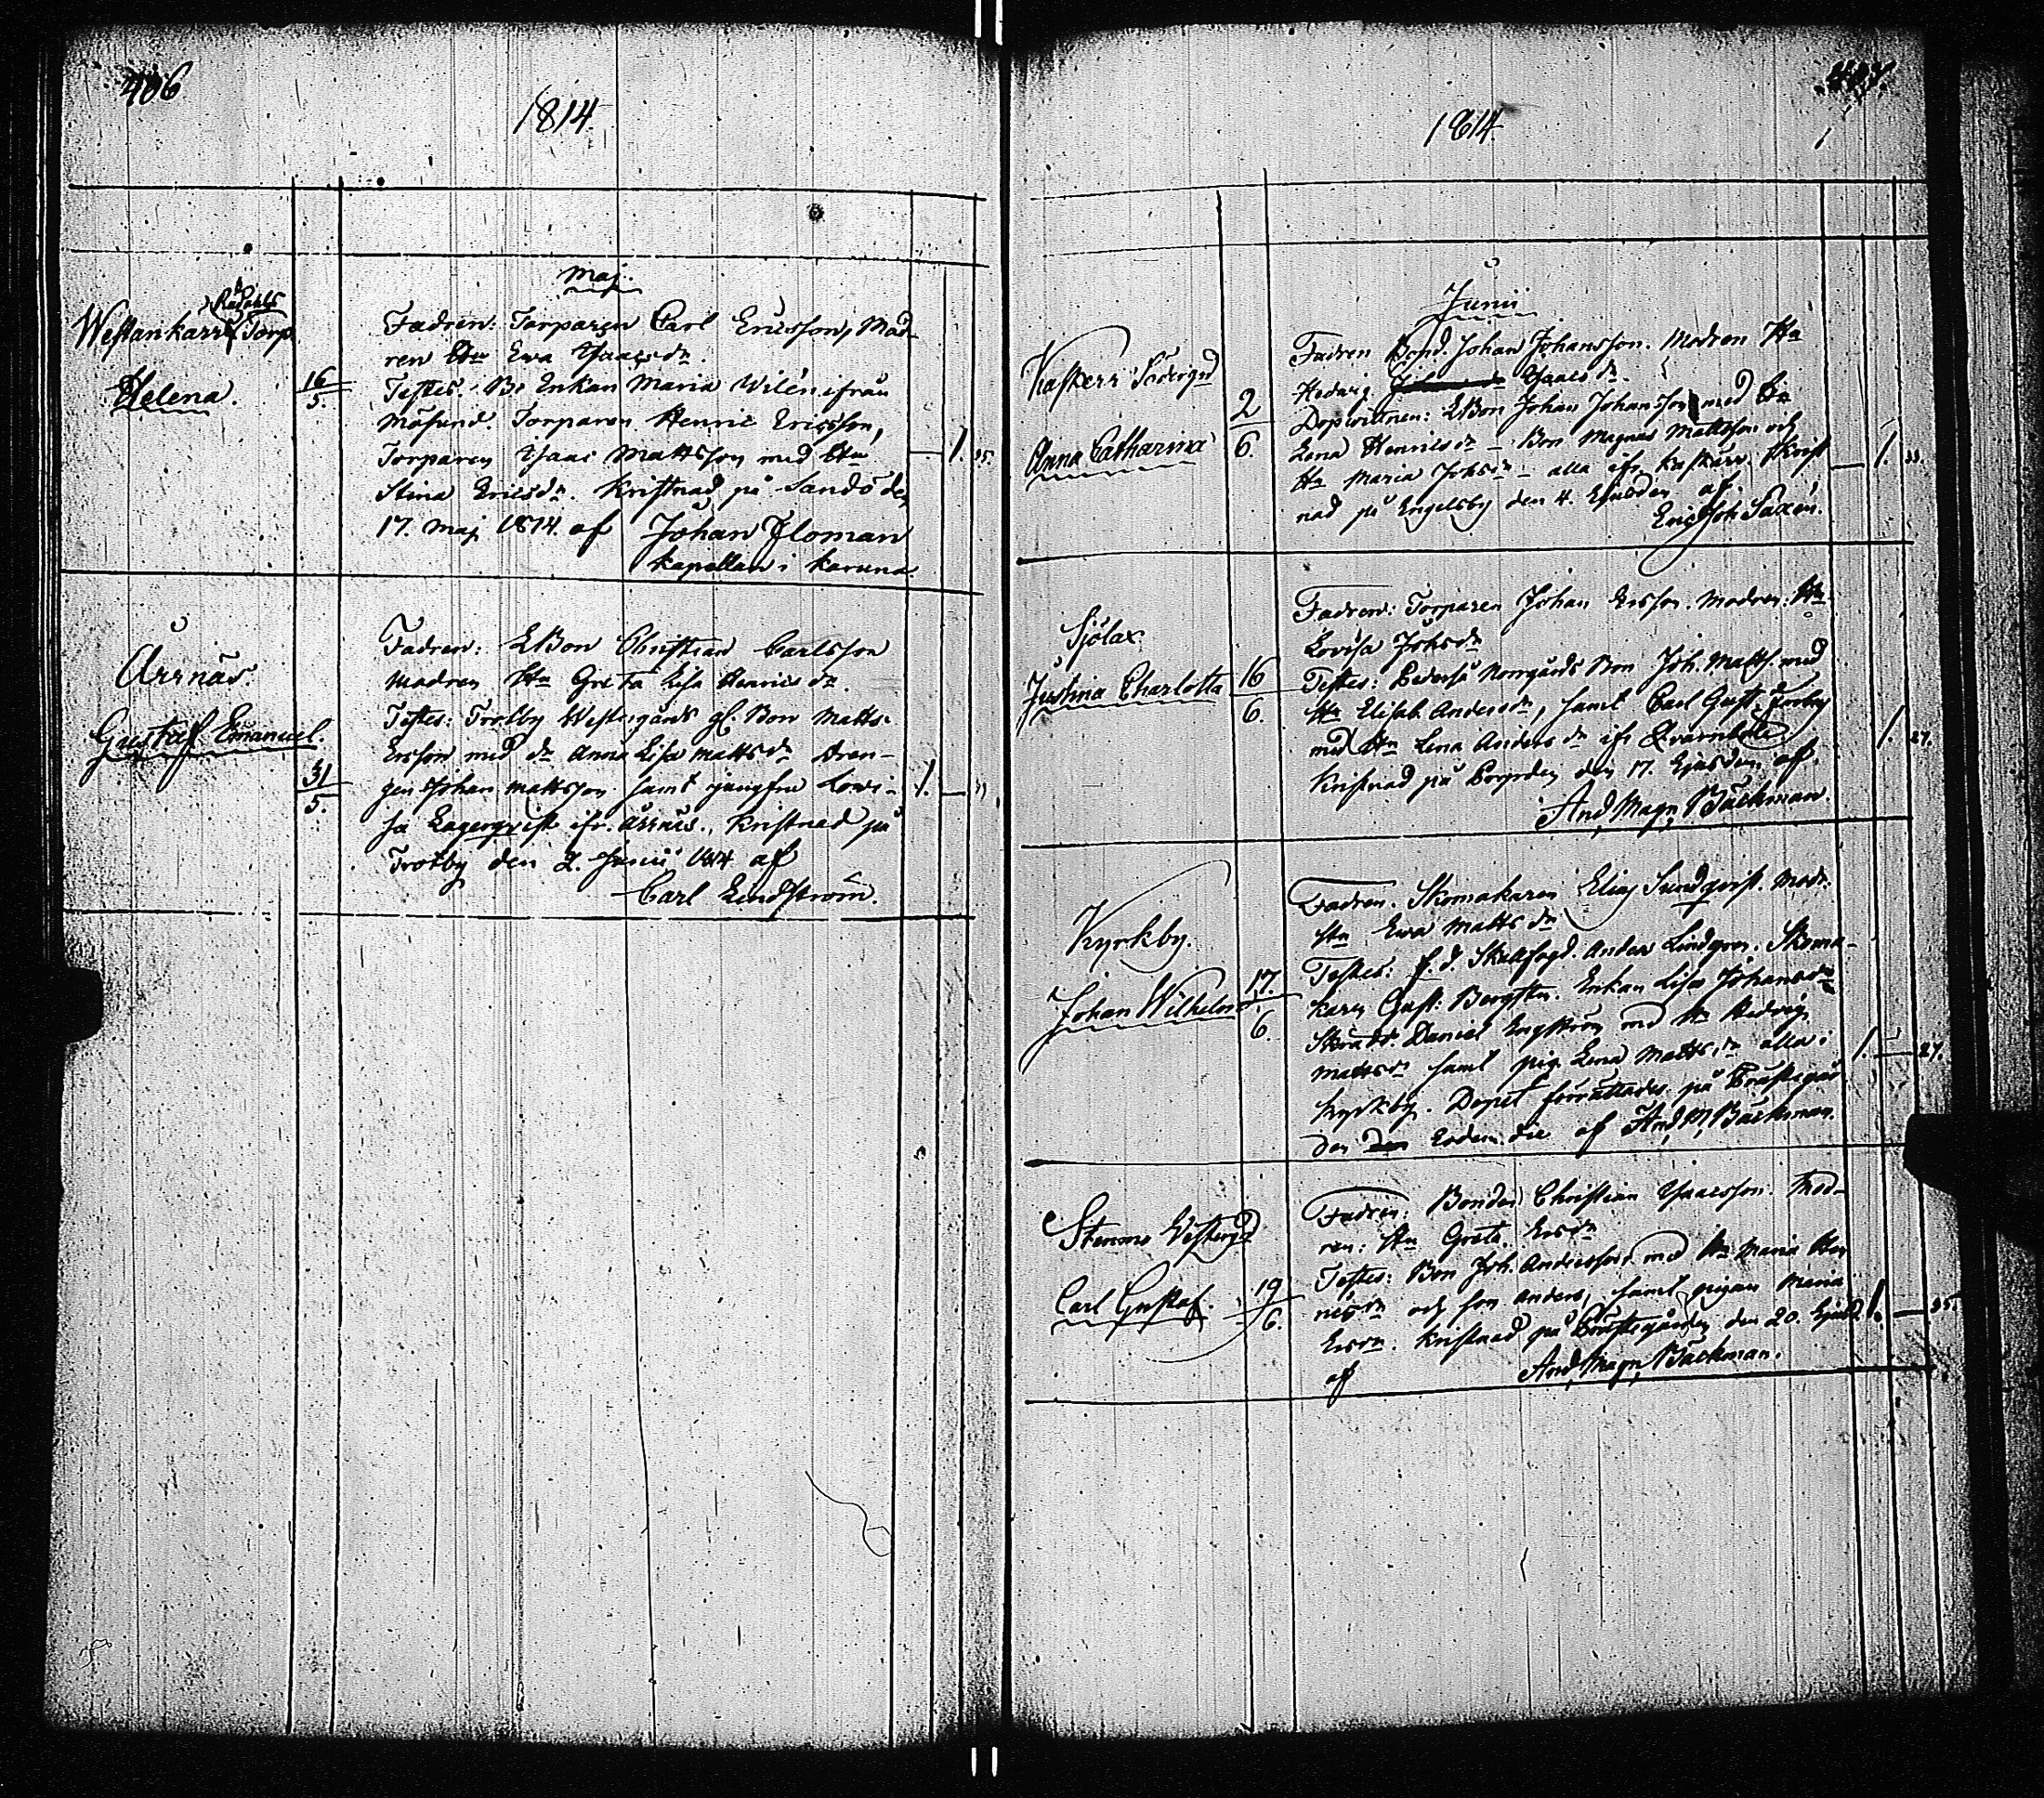 406
1814
Maj.
Westankärr Torp
Helena.
16
5.
Fadren: Torparen Carl Ericsson, Mod-
ren Hu Ewa Isaacs dr.
Testes: Be Enkan Maria Wilén ifrån
Måsund. Torparen Henric Ericsson,
Torparen Isaac Mattsson med Hu
Stina Erics dr. Kristnad på Sandö den
17. Maj 1814. af Johan Floman
Kapellan i Karuna.
1.
35.
Årsnäs.
Gustaf Emanuel.
31
5.
Fadren: EBon Christian Carlsson
Modren Hu Greta Lisa Henrics dr.
Testes: Trotby Westergårds gl. Bon Matts
Ersson med dr Anna Lisa Matts dr Dren-
gen Johan Mattsson samt jungfru Lowi-
sa Lagerqvist ifr. Årsnäs., Kristnad på
Trotby den 2. Junii 1814 af
Carl Lindström.
1.
1814
Junii
Kaskerr Södergd
Anna Catharina
2
6.
Fadren Bond. Johan Johansson. Modren Hu
Hedwig Isaacs dr.
Dopwittnen: EBon Johan Johansson med Hu
Lena Henrics dr – Bon Magnus Mattsson och
Hu Maria Johs dr – alla ifr. Kaskärr. Krist
nad på Engelsby den 4. Ejusdem af.
Eric Joh Saxén.
1.
33.
Sjölax
Justina Charlotta
16
6.
Fadren: Torparen Johan Ersson. Modren: Hu
Lovisa Johs dr
Testes: Pederså Norrgårds Bon Joh. Matts. med
Hu Elisab. Anders dr, samt Carl Gust.
med Hu Lena Anders dr ifr Qvarnbolle
Kristnad på den 17. Ejusdem af.
And. Magn. Bäckman.
1.
27.
Kyrkby.
Johan Wilhelm
17.
6.
Fadren. Skomakaren Elias Sundqvist. Modr:
Hu Ewa Matts dr
Testes: f. d. Anders Lindgren. Skoma-
karen Gust: Bergsten. Enkan Lisa Johans dr
Skrädd. Daniel Engström med Hu Hedwig
Matts dr samt pig. Lena Matts dr alla i
Kyrkby. Dopet förrättades på Prästegår
den Eodem die af And. M. Bäckman.
1.
27.
Stenmo Westergd
Carl Gustaf.
19
6.
Fadren: Bonden Christian Isaacsson. Mod-
ren: Hu Greta Ers dr
Testes: Bon Joh. Andersson med Hu Maria Hen
rics dr och son Anders, samt pigan Maria
Ers dr. Kristnad på Prästegården den 20. Ejusd.
af And. Magn. Bäckman.
1.
35.